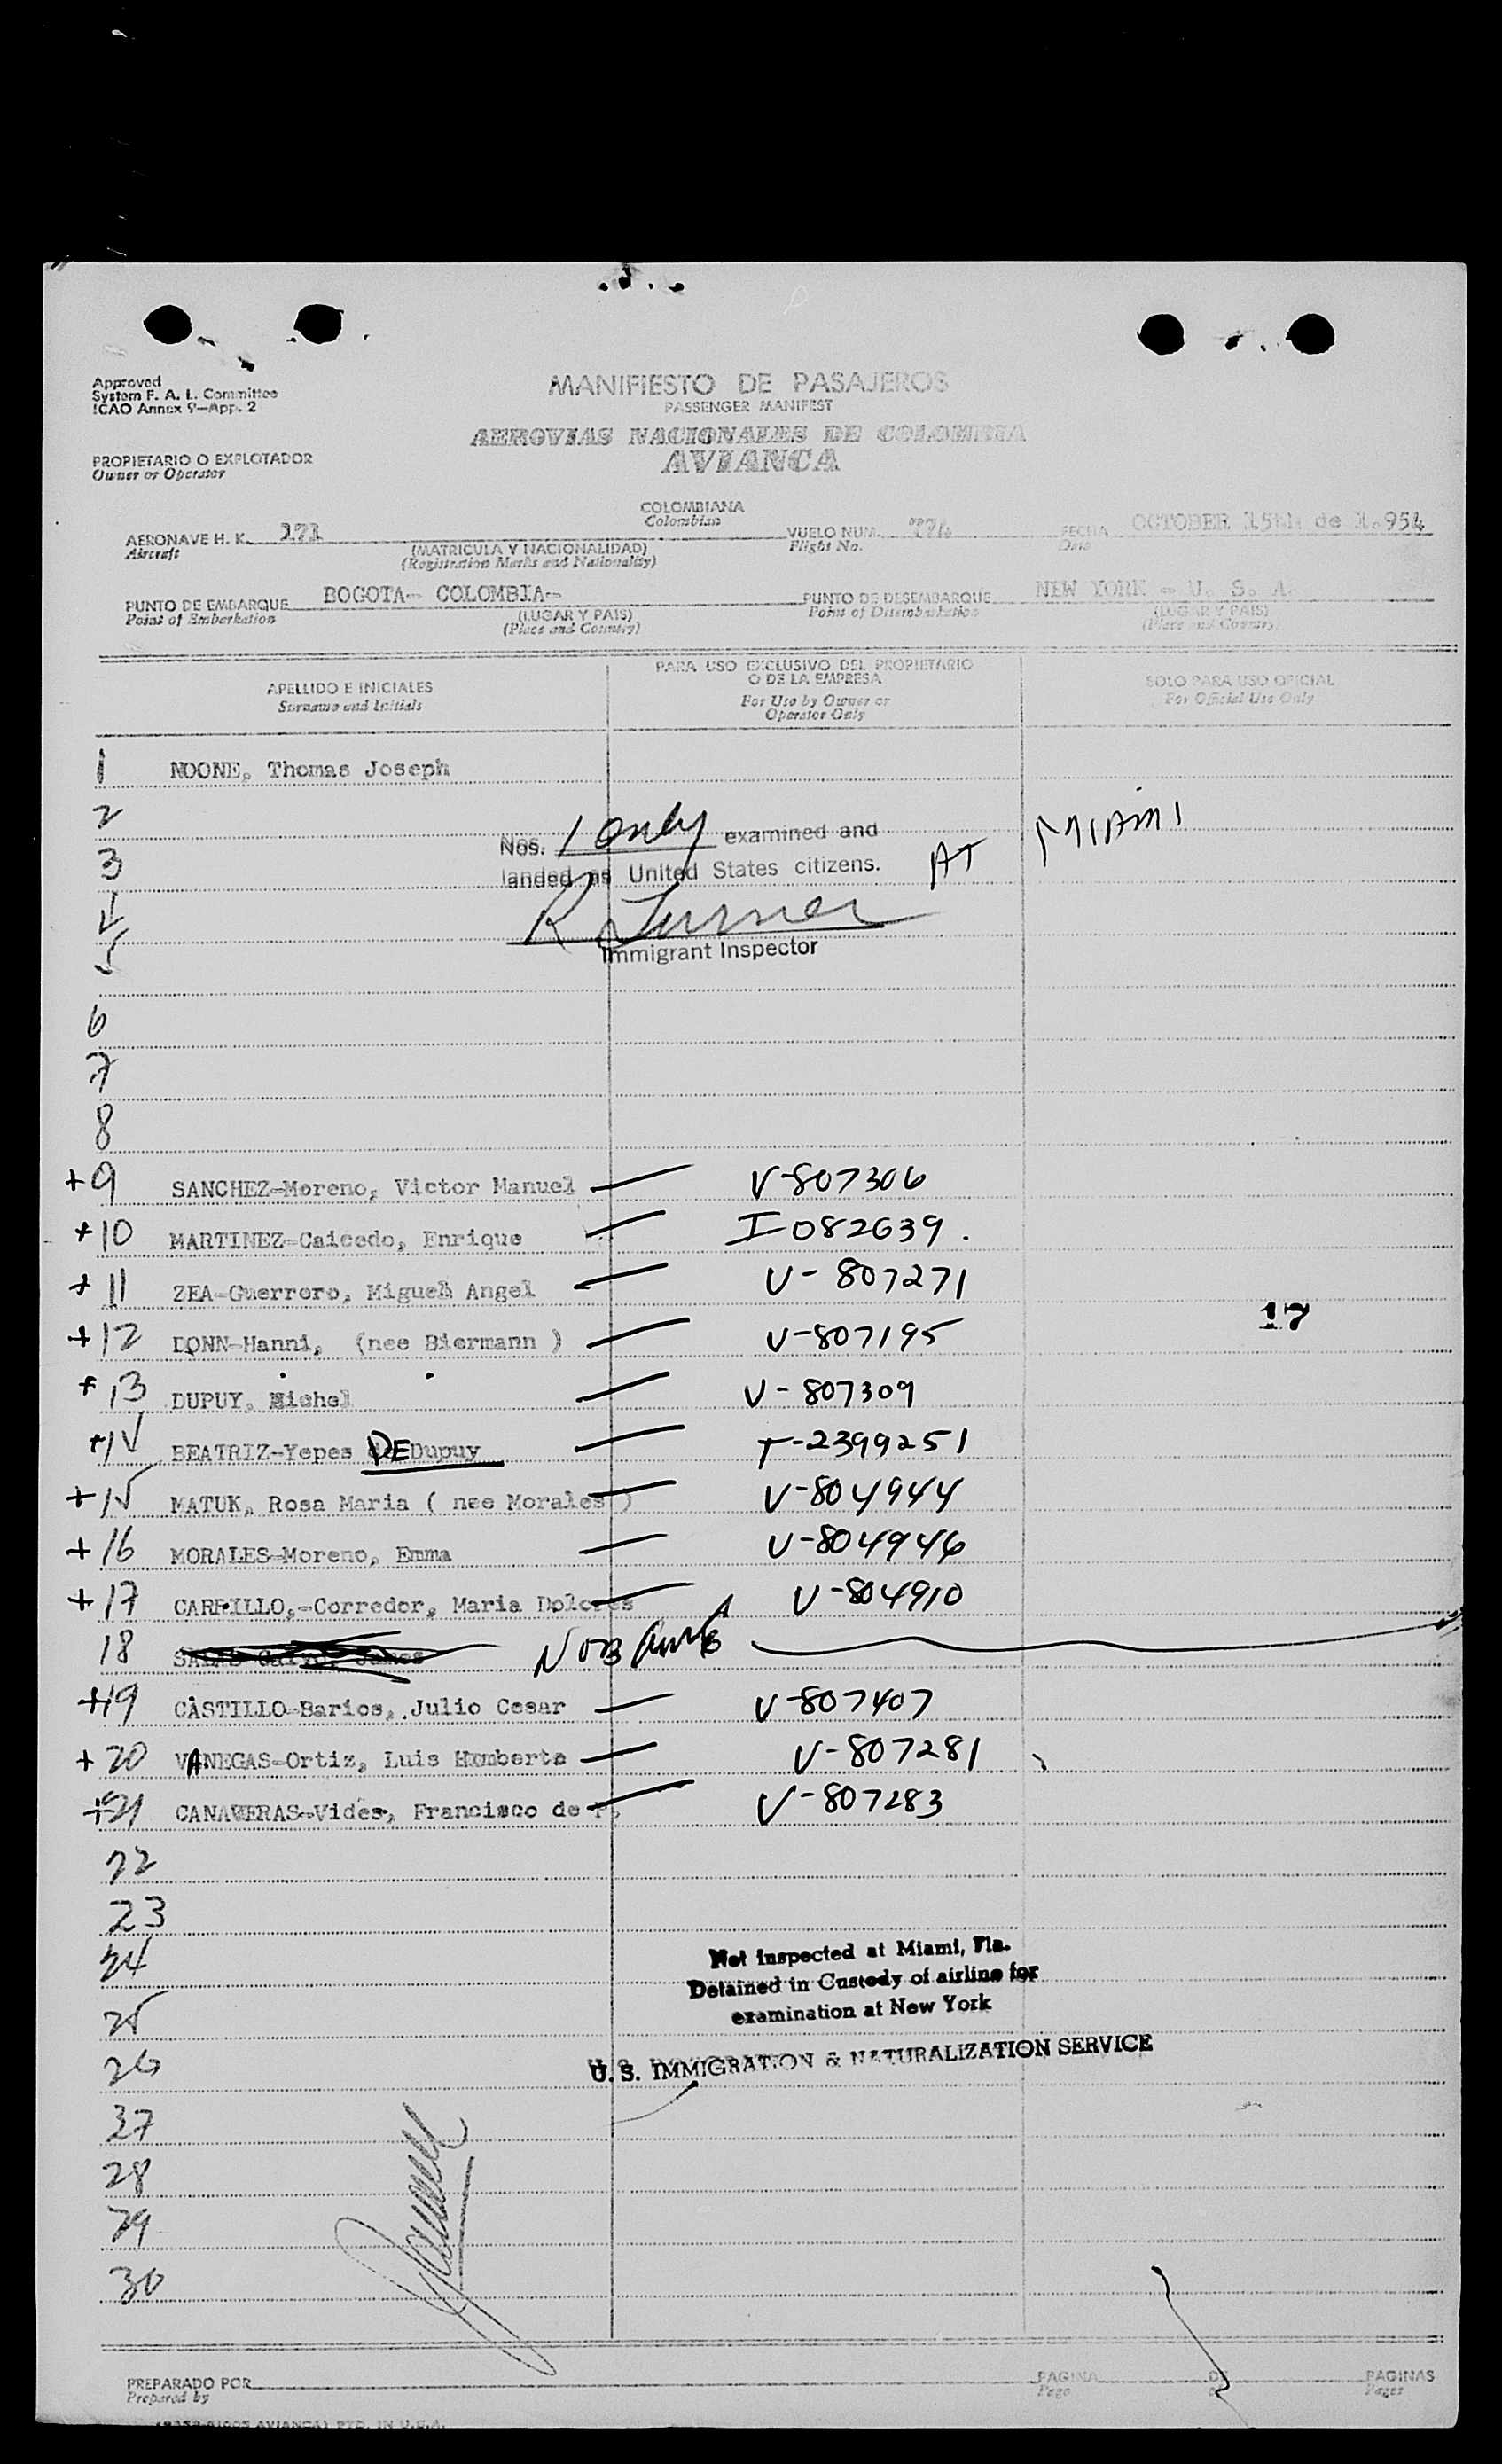 Approved
System F. A. L. Committee
ICAO Annex 9—App. 2
MANIFIESTO DE PASAJEROS
PASSENGER MANIFEST
AEROVIAS NACIONALES DE COLOMBIA
AVIANCA
PROPIETARIO O EXPLOTADOR
Owner or Operator
COLOMBIANA
Colombian
AERONAVE H. K. 171 VUELO NUM. 774 FECHA OCTOBER 15th de 1.954
Aircraft (MATRICULA Y NACIONALIDAD) Flight No. Date
(Registration Marks and Nationality)
PUNTO DE EMBARQUE BOGOTA- COLOMBIA- PUNTO DE DESEMBARQUE NEW YORK - U. S. A.
Point of Embarkation (LUGAR Y PAIS) Point of Disembarkation (LUGAR Y PAIS)
(Place and Country) (Place and Country)
APELLIDO E INICIALES PARA USO EXCLUSIVO DEL PROPIETARIO O DE LA EMPRESA SOLO PARA USO OFICIAL
Surname and Initials For Use by Owner or Operator Only For Official Use Only
1 NOONE, Thomas Joseph
2
Nos. 1 only examined and
3 landed as United States citizens. AT MIAMI
4 R Turner
5 Immigrant Inspector
6
7
8
+9 SANCHEZ-Moreno, Victor Manuel — V-807306
+10 MARTINEZ-Caicedo, Enrique — I-082639.
+11 ZEA-Guerrero, Miguel Angel — V-807271
17
+12 DONN-Hanni, (nee Biermann ) — V-807195
+13 DUPUY, Michel — V-807309
+14 BEATRIZ-Yepes DE Dupuy — T-2399251
+15 MATUK, Rosa Maria ( nee Morales ) — V-804944
+16 MORALES-Moreno, Emma — V-804946
+17 CARRILLO,-Corredor, Maria Dolores — V-804910
18
+19 CASTILLO-Barios, Julio Cesar — V-807407
+20 VANEGAS-Ortiz, Luis Humberto — V-807281
+21 CANAVERAS-Vides, Francisco de P. — V-807283
22
23
24 Not Inspected at Miami, Fla.
Detained in Custody of airline for
25 examination at New York
26 U. S. IMMIGRATION & NATURALIZATION SERVICE
27
28
29
30
PREPARADO POR PAGINA DE PAGINAS
Prepared by Page Pages